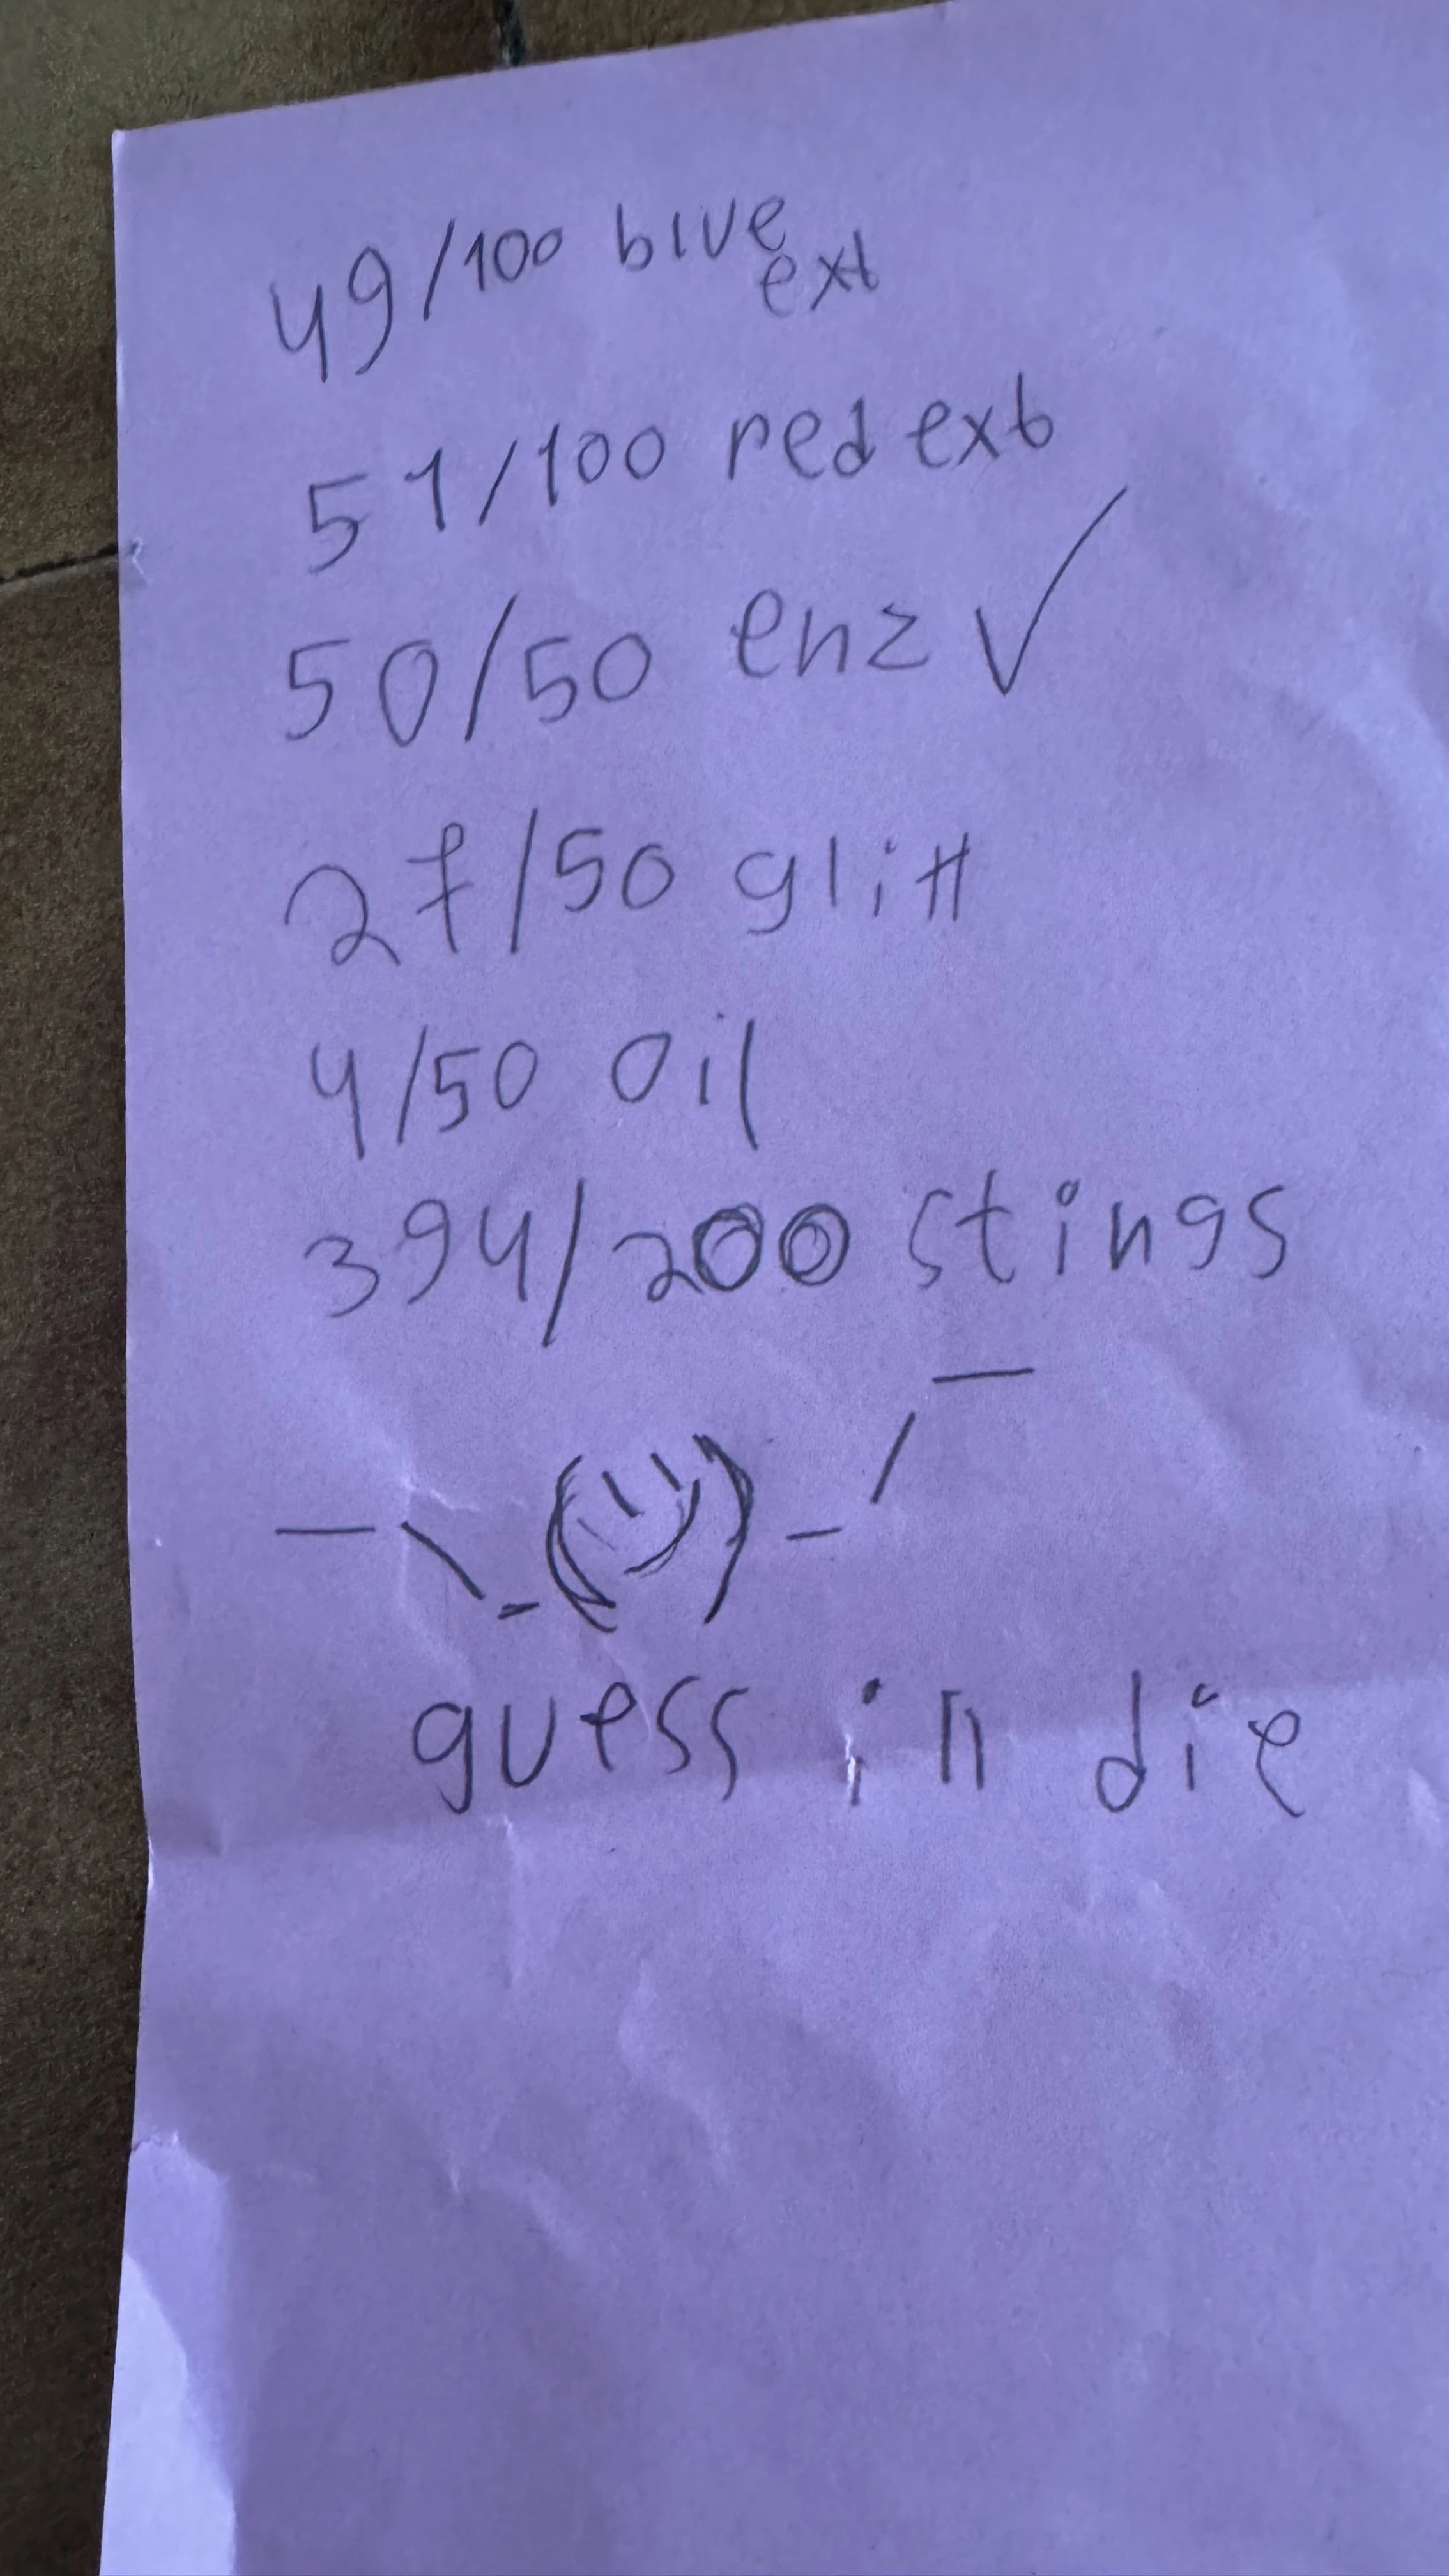 49/100 blue
ext
51/100 red ext
50/50 enz ✓
27/50 glitt
4/50 oil
394/200 stings
guess in die